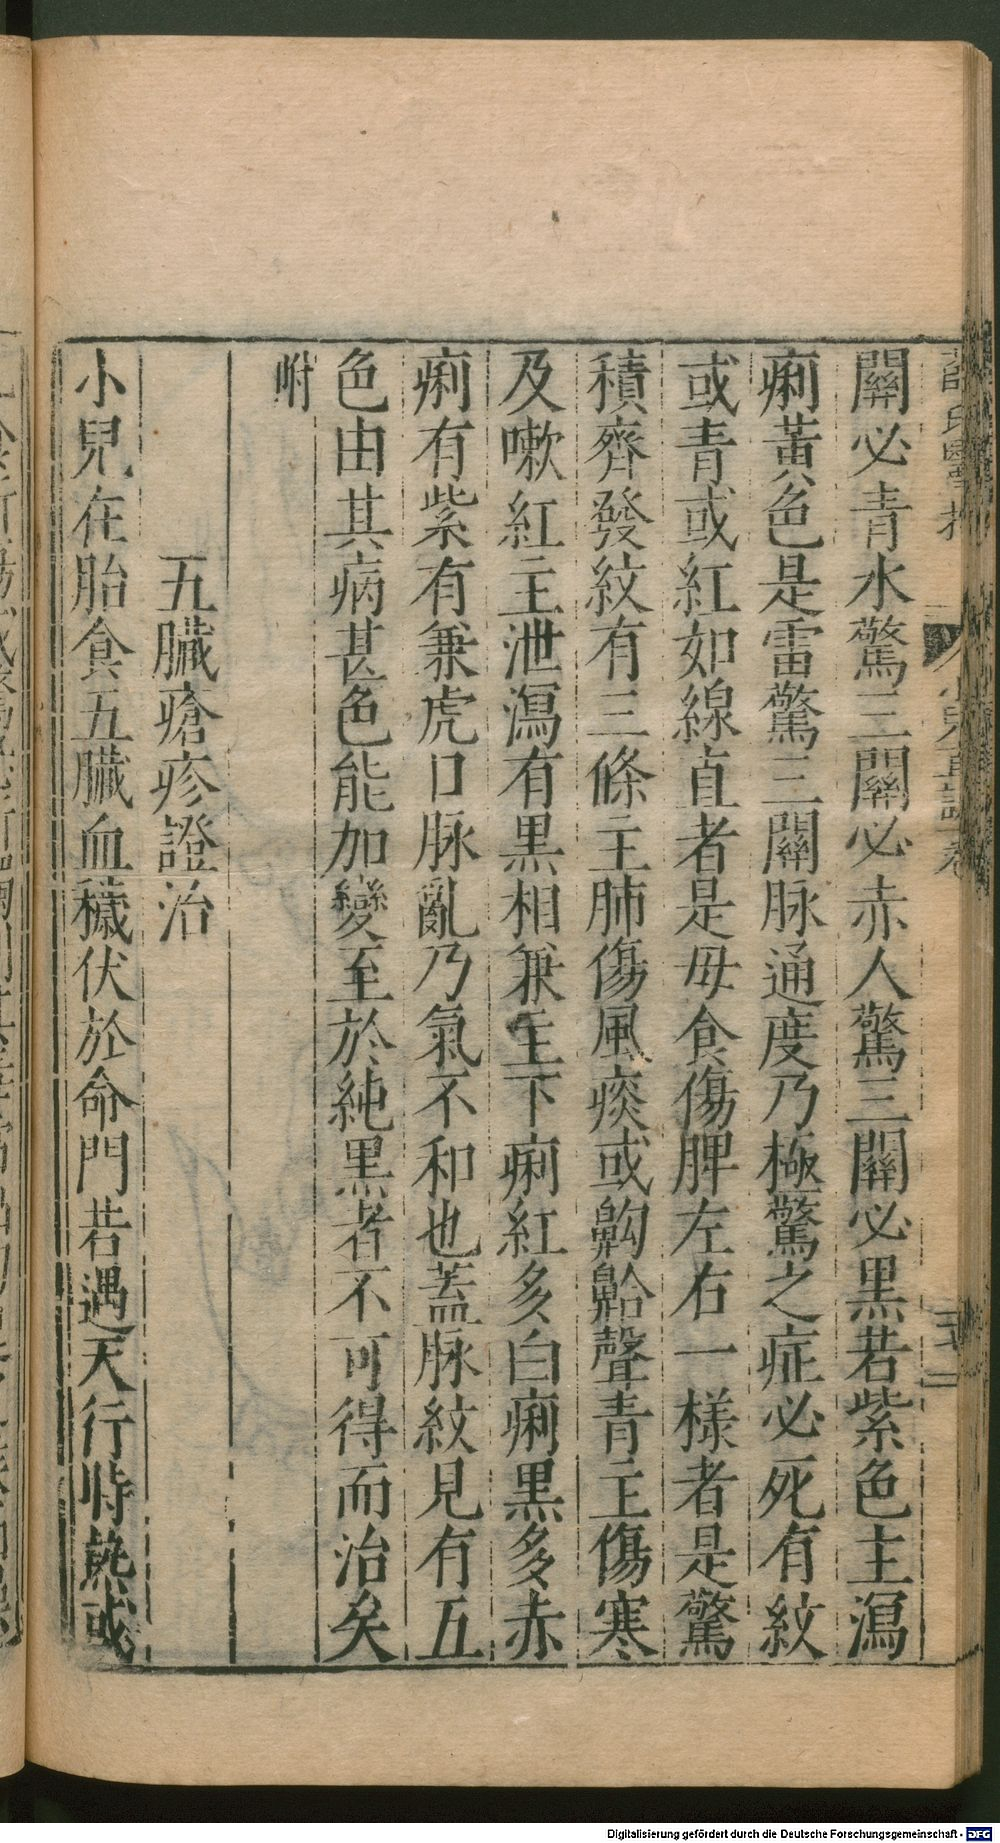 關必青水驚三關必赤人驚三關必黒若紫色主瀉
痢黃色是雷驚三關脉通度乃極驚之症必死有紋
或青或紅如線直者是母食傷脾左右一樣者是驚
積齊發紋有三條主肺傷風痰或齁䶎聲青主傷寒
及嗽紅主泄瀉有黒相兼主下痢紅多白痢黒多赤
痢有紫有兼虎口脉亂乃氣不和也蓋脉紋見有五
色由其病甚色能加變至於純黒者不可得而治矣
附
五臟瘡疹證治
小兒在胎食五臟血穢伏於命門若遇天行時熱或
Digitalisierung gefördert durch die Deutsche Forschungsgemeinschaft - DFG